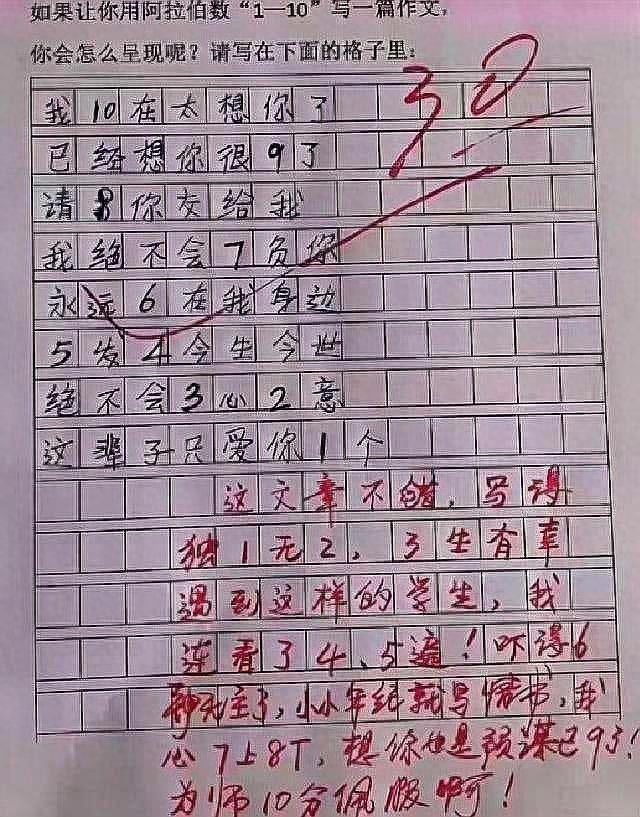 如果让你用阿拉伯数“1—10”写一篇作文,
你会怎么呈现呢？请写在下面的格子里:
30
我10在太想你了
已经想你很9了
请8你交给我
我绝不会7负你
永远6在我身边
5发4今生今世
绝不会3心2意
这辈子只爱你1个
这文章不错，写得
独1无2，3生有幸
遇到这样的学生，我
连看了4、5遍！吓得6
神无主了，小小年纪就写情书，我
心7上8下，想你也是预谋已9了！
为师10分佩服啊！